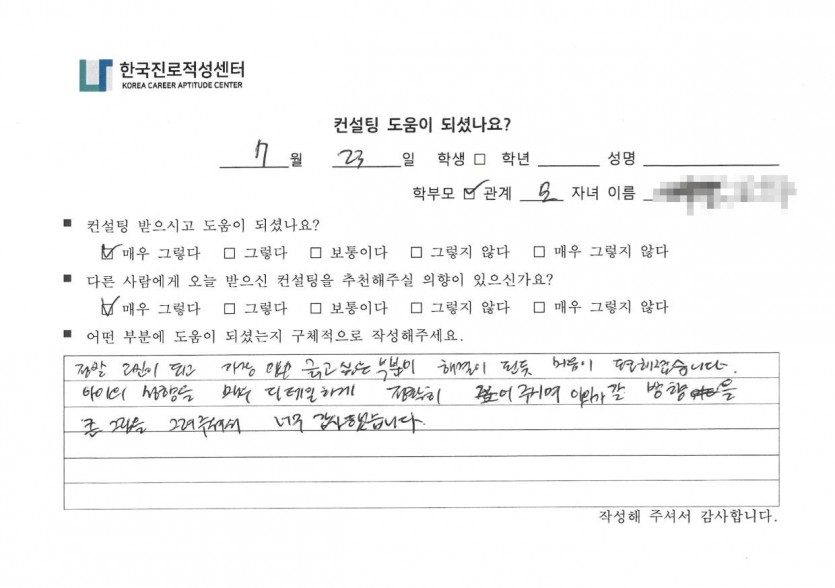 한국진로적성센터
KOREA CAREER APTITUDE CENTER
컨설팅 도움이 되셨나요?
7 월 23 일 학생 □ 학년 성명
학부모 ☑ 관계 모 자녀 이름
■ 컨설팅 받으시고 도움이 되셨나요?
☑ 매우 그렇다 □ 그렇다 □ 보통이다 □ 그렇지 않다 □ 매우 그렇지 않다
■ 다른 사람에게 오늘 받으신 컨설팅을 추천해주실 의향이 있으신가요?
☑ 매우 그렇다 □ 그렇다 □ 보통이다 □ 그렇지 않다 □ 매우 그렇지 않다
■ 어떤 부분에 도움이 되셨는지 구체적으로 작성해주세요.
정말 고민이 되고 가장 긁고 싶은 부분이 해결이 된듯 마음이 편해졌습니다.
아이의 성향을 매우 디테일하게 정확히 짚어 주시며 갈 방향을
큰 그림을 그려주셔서 너무 감사했습니다.
작성해 주셔서 감사합니다.